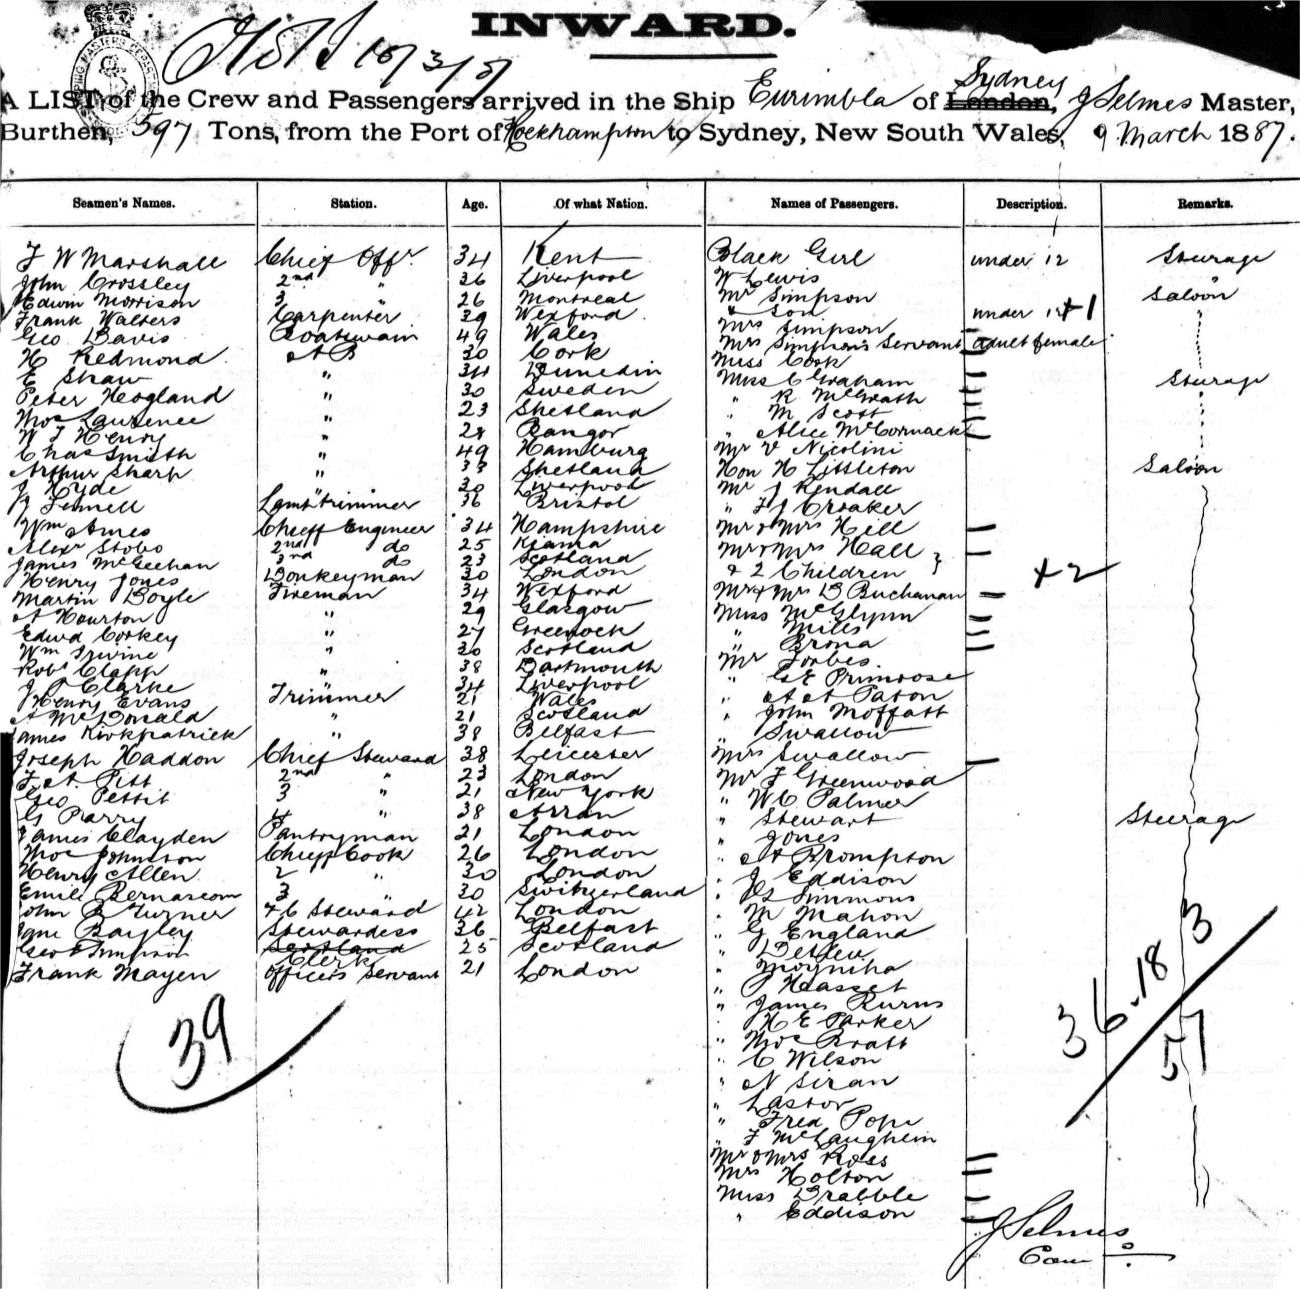 INWARD.
10/3/87
A LIST of the Crew and Passengers arrived in the Ship Eurimbla of London, Sydney, J Selmes Master,
Burthen, 597 Tons, from the Port of Rockhampton to Sydney, New South Wales, 9 March 1887.
Seamen's Names. Station. Age. Of what Nation. Names of Passengers. Description. Remarks.
F W Marshall Chief Offr 34 Kent Black Girl under 12 Steerage
John Crossley 2nd " 36 Liverpool W Lewis "
Edwin Morrison 3 " 26 Montreal Mr Simpson Saloon
Frank Walters Carpenter 29 Wexford & Son under 12 +1
Geo Davis Boatswain 49 Wales Mrs Simpson
H Redmond A B 30 Cork Mrs Simpson's Servant adult female
E Shaw " 34 Dunedin Miss Cork
Peter Hogland " 30 Sweden Miss C Graham Steerage
Thos Laurence " 23 Shetland " R McGrath
W J Henry " 28 Bangor " M Scott
Chas Smith " 49 Hamburg " Alice McCormack
Arthur Sharp " 33 Shetland Mr V Nicolini
J Hyde " 30 Liverpool Hon H Littleton Saloon
J Fennell Lamptrimmer 36 Bristol Mr J Kendall
Wm Ames Chief Engineer 34 Hampshire " F J Croaker
Alexr Stobo 2nd do 25 Kiama Mr & Mrs Hill
James McGeehan 3rd do 23 Scotland Mr & Mrs Hall
Henry Jones Donkeyman 30 London & 2 Children +2
Martin Doyle Fireman 34 Wexford Mr & Mrs D Buchanan
A Hourton " 29 Glasgow Miss McGlynn
Edwd Corkey " 27 Greenock " Mills
Wm Irvine " 30 Scotland " Brona
Robt Clapp " 38 Dartmouth Mr Forbes.
J P Clarke " 34 Liverpool " G E Primrose
Henry Evans Trimmer 21 Wales " A A Paton
A McDonald " 21 Scotland " John Moffatt
James Kirkpatrick " 38 Belfast " Swallow
Joseph Haddon Chief Steward 38 Leicester Mrs Swallow
F A Pitt 2nd " 23 London Mr F Greenwood
Geo Pettit 3 " 21 New York " W C Palmer
G Parry 4 " 38 Arran " Stewart Steerage
James Clayden Pantryman 21 London " Jones
Thos Johnston Chief Cook 26 London " A Brompton
Henry Allen 2 " 30 London " J Eddison
Emile Bernascom 3 " 30 Switzerland " G Simmons
John B Turner F C Steward 42 London " M Mahon
Jane Bayley Stewardess 36 Belfast " G England
Geo A Simpson Scotland Clerk 25 Scotland " Detlew
Frank Mayen Officers Servant 21 London " Moyniha
" J Hasset
" James Burns
" H E Parker
" Thos Pratt
" C Wilson
" N Siran
" Lastor
" Fred Pope
" F McLaughlin
Mr & Mrs Ross
Mrs Holton
Miss Drabble
" Eddison
39
36.18 3
57
J Selmes
Com